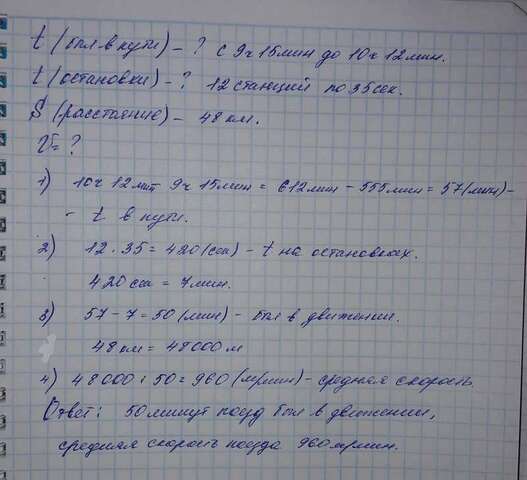 t (был в пути) - ? с 9ч 15мин до 10ч 12мин.
t (остановки) - ? 12 станций по 35 сек.
S (расстояние) - 48 км.
V = ?
1) 10ч 12мин 9ч 15мин = 612мин - 555мин = 57(мин) -
- t в пути.
2) 12 · 35 = 420 (сек) - t на остановках.
420 сек = 7 мин.
3) 57 - 7 = 50 (мин) - был в движении.
48 км = 48000 м
4) 48000 : 50 = 960 (м/мин) - средняя скорость.
Ответ: 50 минут поезд был в движении,
средняя скорость поезда 960 м/мин.